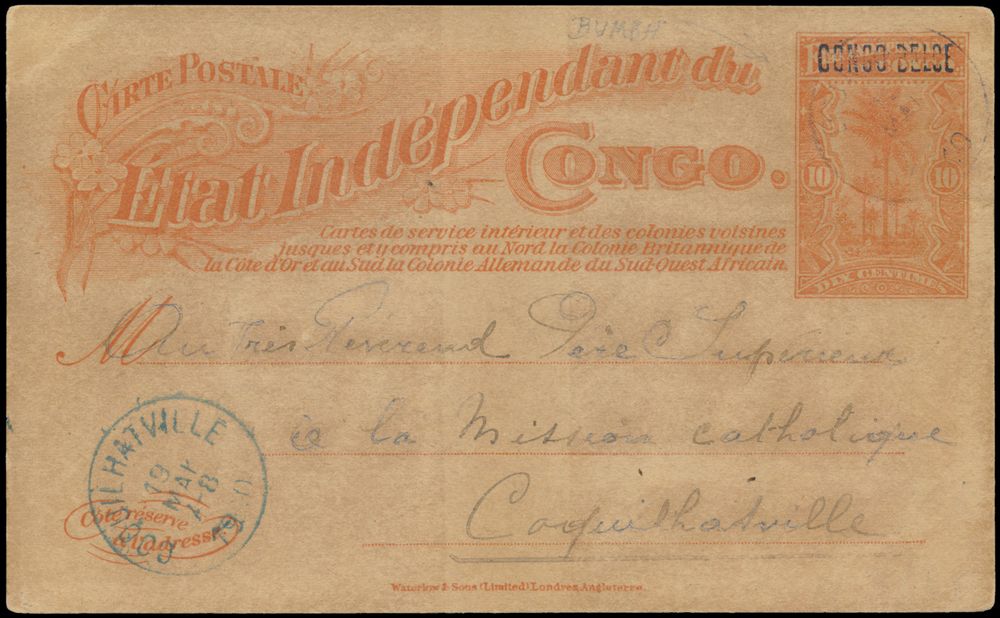 BUMBA
CARTE POSTALE
Etat Indépendant du
CONGO.
Cartes de service intérieur et des colonies voisines
jusques et y compris au Nord la Colonie Britannique de
la Côte d'Or et au Sud la Colonie Allemande du Sud-Ouest Africain
CONGO BELGE
10 10
DIX CENTIMES
M Au Très Révérend Père Supérieur
à la Mission catholique
Coquilhatville
COQUILHATVILLE
19
MAI
Côté réservé
à l'adresse
Waterlow & Sons (Limited) Londres, Angleterre.